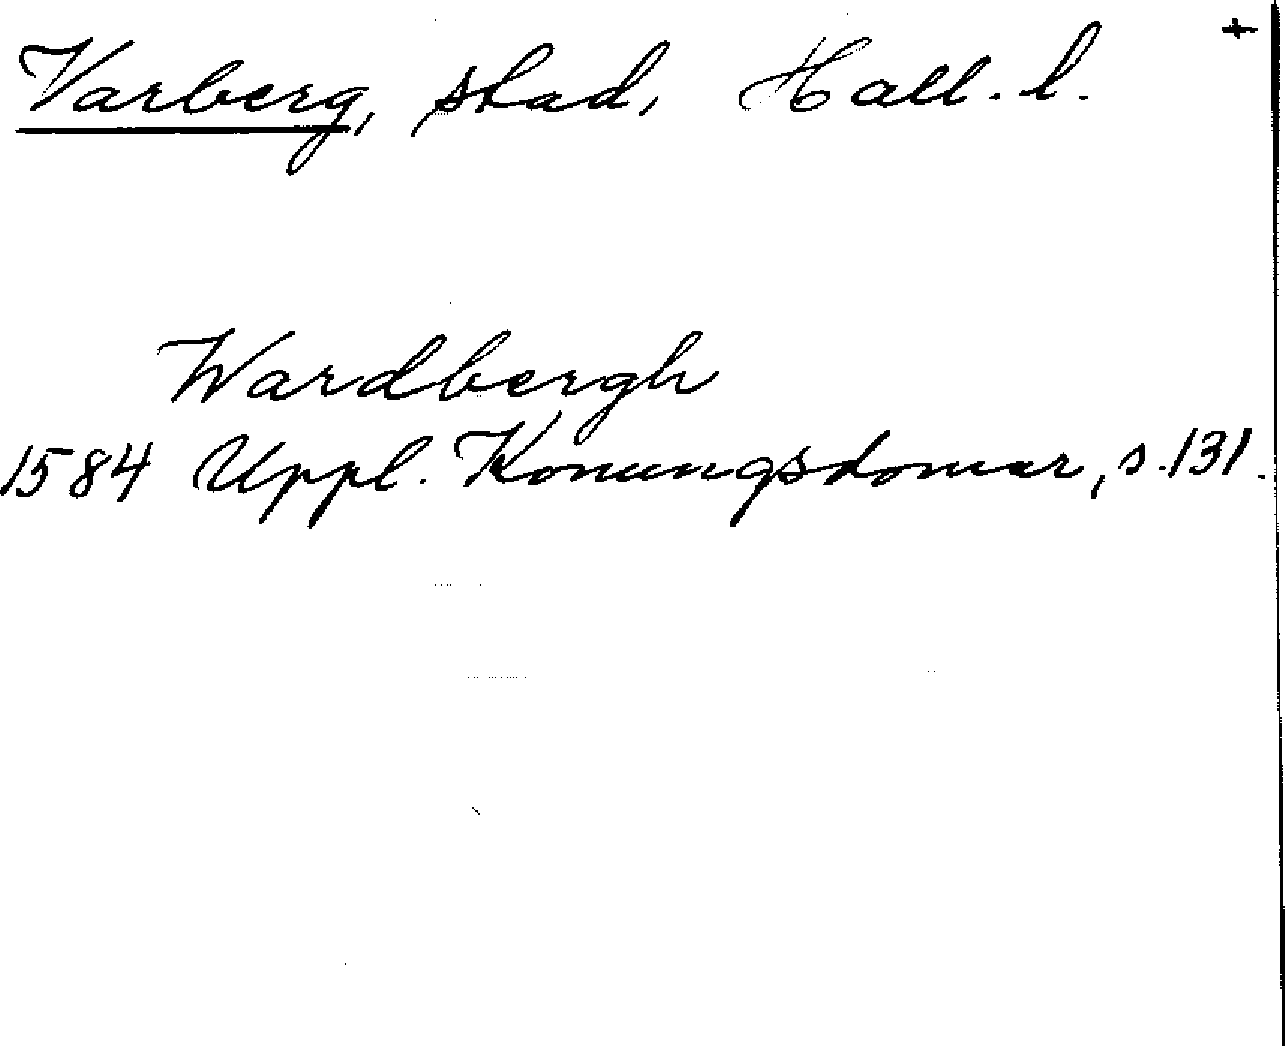 Varberg, stad, Hall. l. +
Wardbergh
1584 Uppl. Konungsdomar, s. 131.